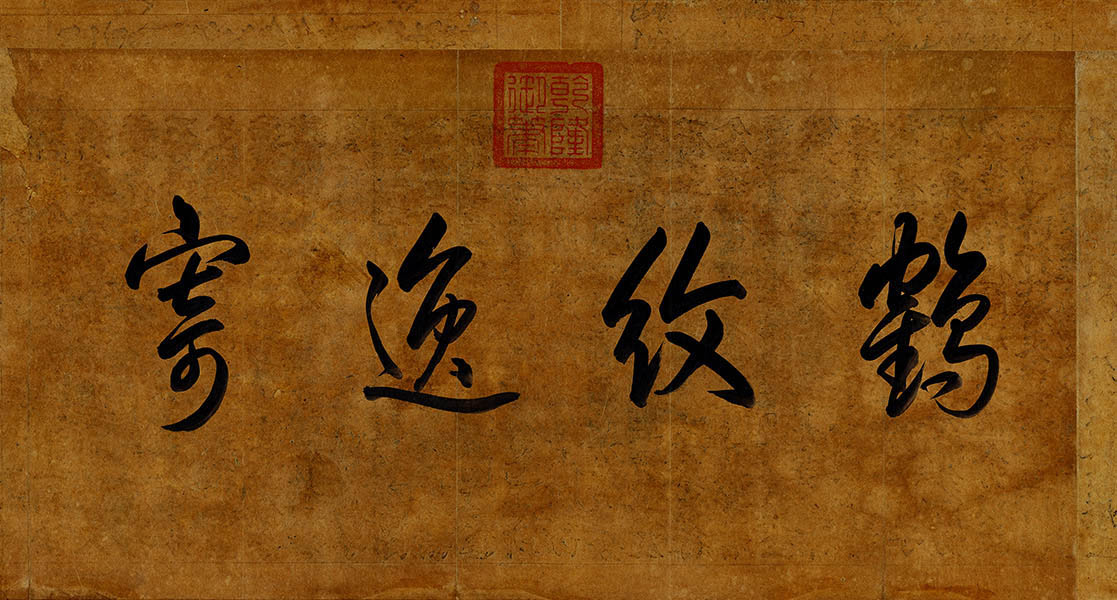 乾隆御筆
紋逸寄